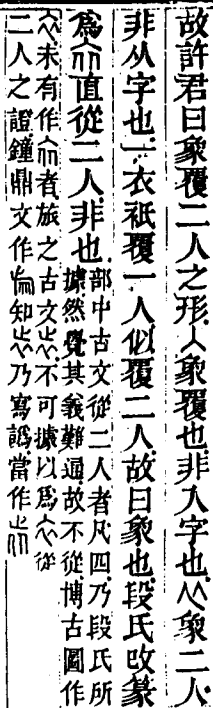 故許君曰象覆二人之形人象覆也非入字也从象二人
非从字也一衣祇覆一人似覆二人故曰象也段氏改篆
爲𠆢直從二人非也
部中古文從二人者凡四乃段氏所
據然覺其義難通故不從博古圖作
未有作者旅之古文不可據以爲从
二人之證鐘鼎文作知乃寫譌當作